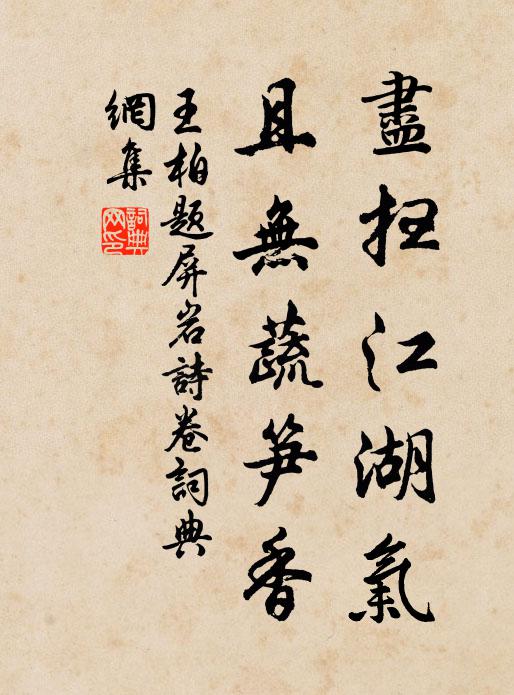 盡扫江湖氣
且無蔬笋香
王柏題屏岩詩卷詞典
網集
詞典
网印